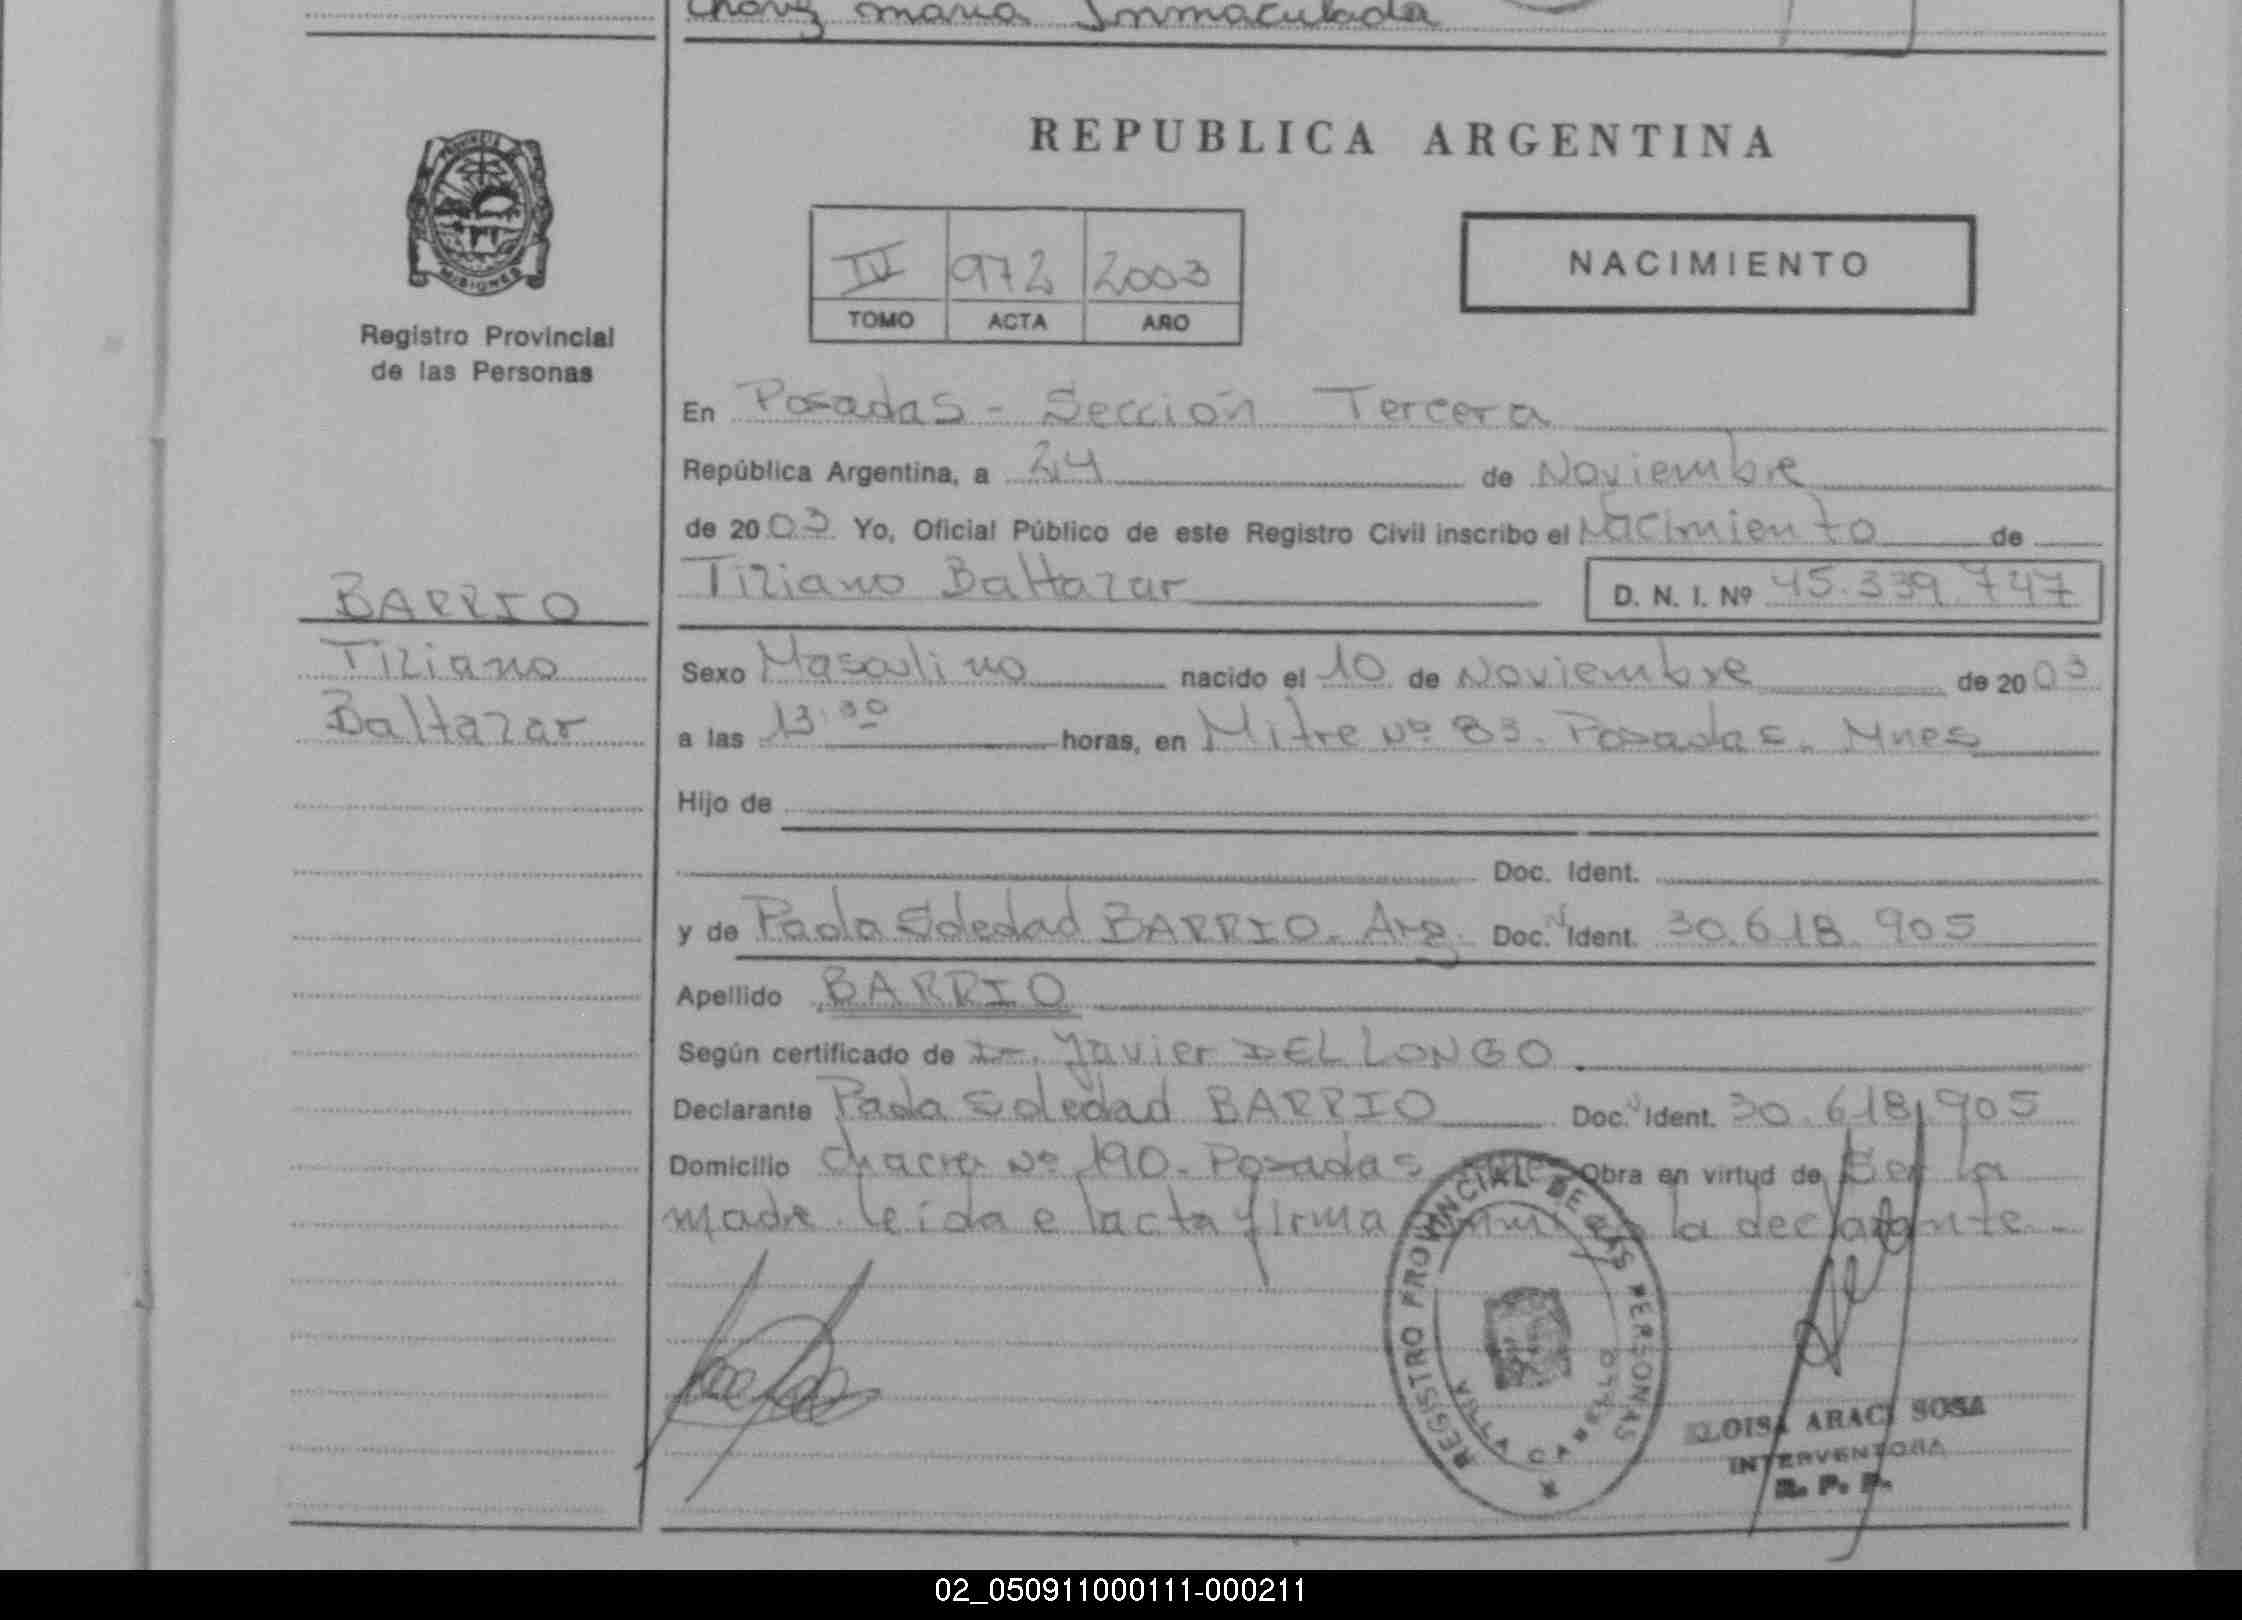 Chavez maria Inmaculada
PROVINCIA DE
MISIONES
Registro Provincial
de las Personas
REPUBLICA ARGENTINA
IV 972 2003
TOMO ACTA AÑO
NACIMIENTO
En Posadas - Sección Tercera
República Argentina, a 24 de Noviembre
de 2003 Yo, Oficial Público de este Registro Civil inscribo el Nacimiento de
Tiziano Baltazar D. N. I. Nº 45.339.747
BARRIO
Tiziano
Baltazar
Sexo Masculino nacido el 10 de Noviembre de 2003
a las 13:30 horas, en Mitre Nº 83. Posadas. Mnes
Hijo de
Doc. Ident.
y de Paola Soledad BARRIO. Arg. Doc. Ident. 30.618.905
Apellido BARRIO
Según certificado de Dr. Javier DEL LONGO
Declarante Paola Soledad BARRIO Doc. Ident. 30.618.905
Domicilio Chacra Nº 190. Posadas Obra en virtud de Ser la
madre. leída e lacta firma la declarante.
REGISTRO PROVINCIAL DE LAS PERSONAS
VILLA CABELLO
ELOISA ARACI SOSA
INTERVENTORA
R. P. P.
02_050911000111-000211